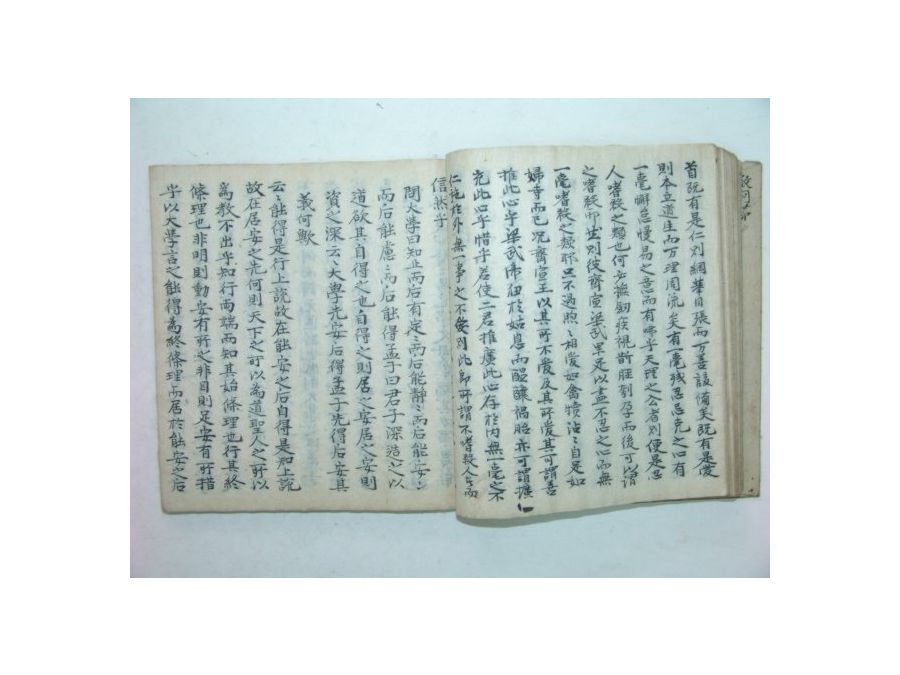 首既有是仁則綱擧目張而万善該備矣既有是愛
則本立道生而万理周流矣有一毫殘忍忌克之心有
一毫懈怠慢易之意而有乎天理之公者則便是忍
人嗜殺之類也何必撫劒疾視斮脛刳孕而後可以謂
之嗜殺也彼齊宣梁武果足以盡不忍之心而無
一毫嗜殺之類耶只不過煦〻相愛如禽犢沽〻自足如
婦寺而已況齊宣王以其所不愛及其所愛其可謂善
推此心乎梁武佛
先此心乎惜乎若使二君推廣此心存於內無一毫之不
仁施於外無一事之不愛則此卽所謂不嗜殺人者而
信然乎
問大學曰知止而后有定〻而后能靜〻而后能安〻
而后能慮〻而后能得孟子曰君子深造之以
道欲其自得之也自得之則居之安居之安則
資之深云云大學先安后得孟子先得后安其
義何歟
云〻能得是行上說故在能安之后自得是知上說
故在居安之先何則天下之所以為道聖人之所以
為敎不出乎知行兩端而知其始條理也行其終
條理也非明則動安有所之非目則足安有所措
乎以大學言之能得為終條理而居於能安之后